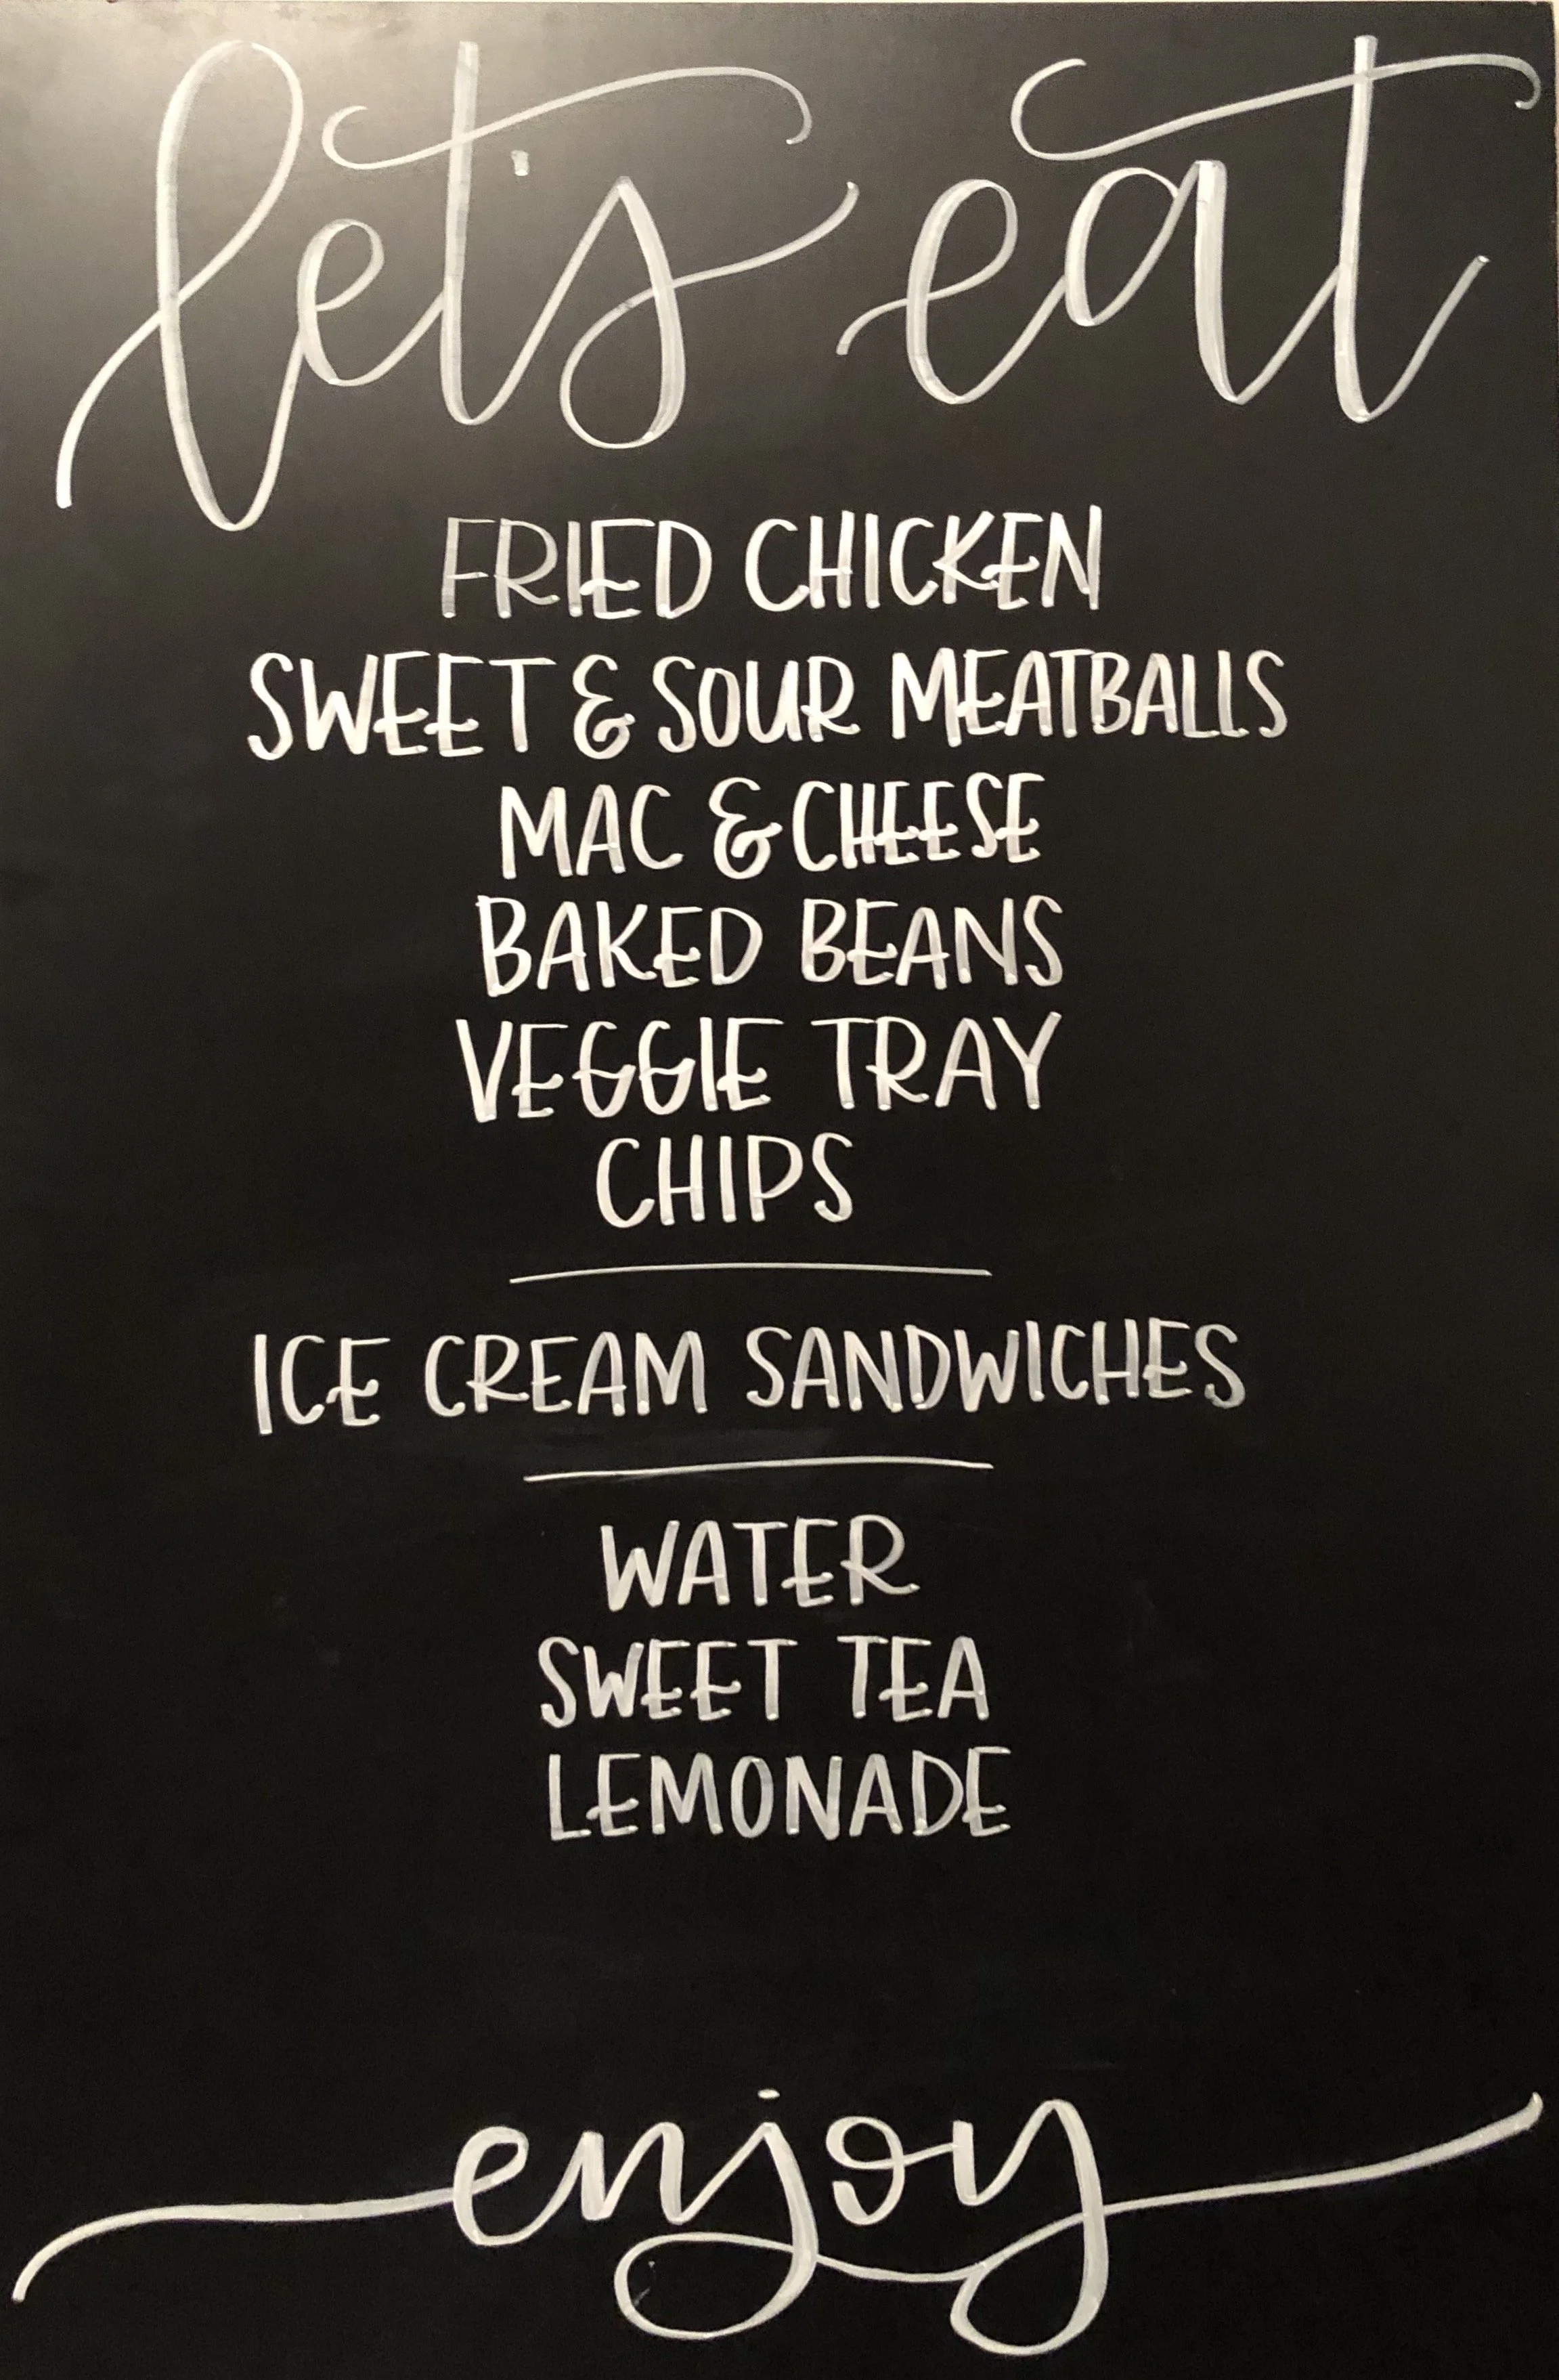 let's eat
FRIED CHICKEN
SWEET & SOUR MEATBALLS
MAC & CHEESE
BAKED BEANS
VEGGIE TRAY
CHIPS
ICE CREAM SANDWICHES
WATER
SWEET TEA
LEMONADE
enjoy